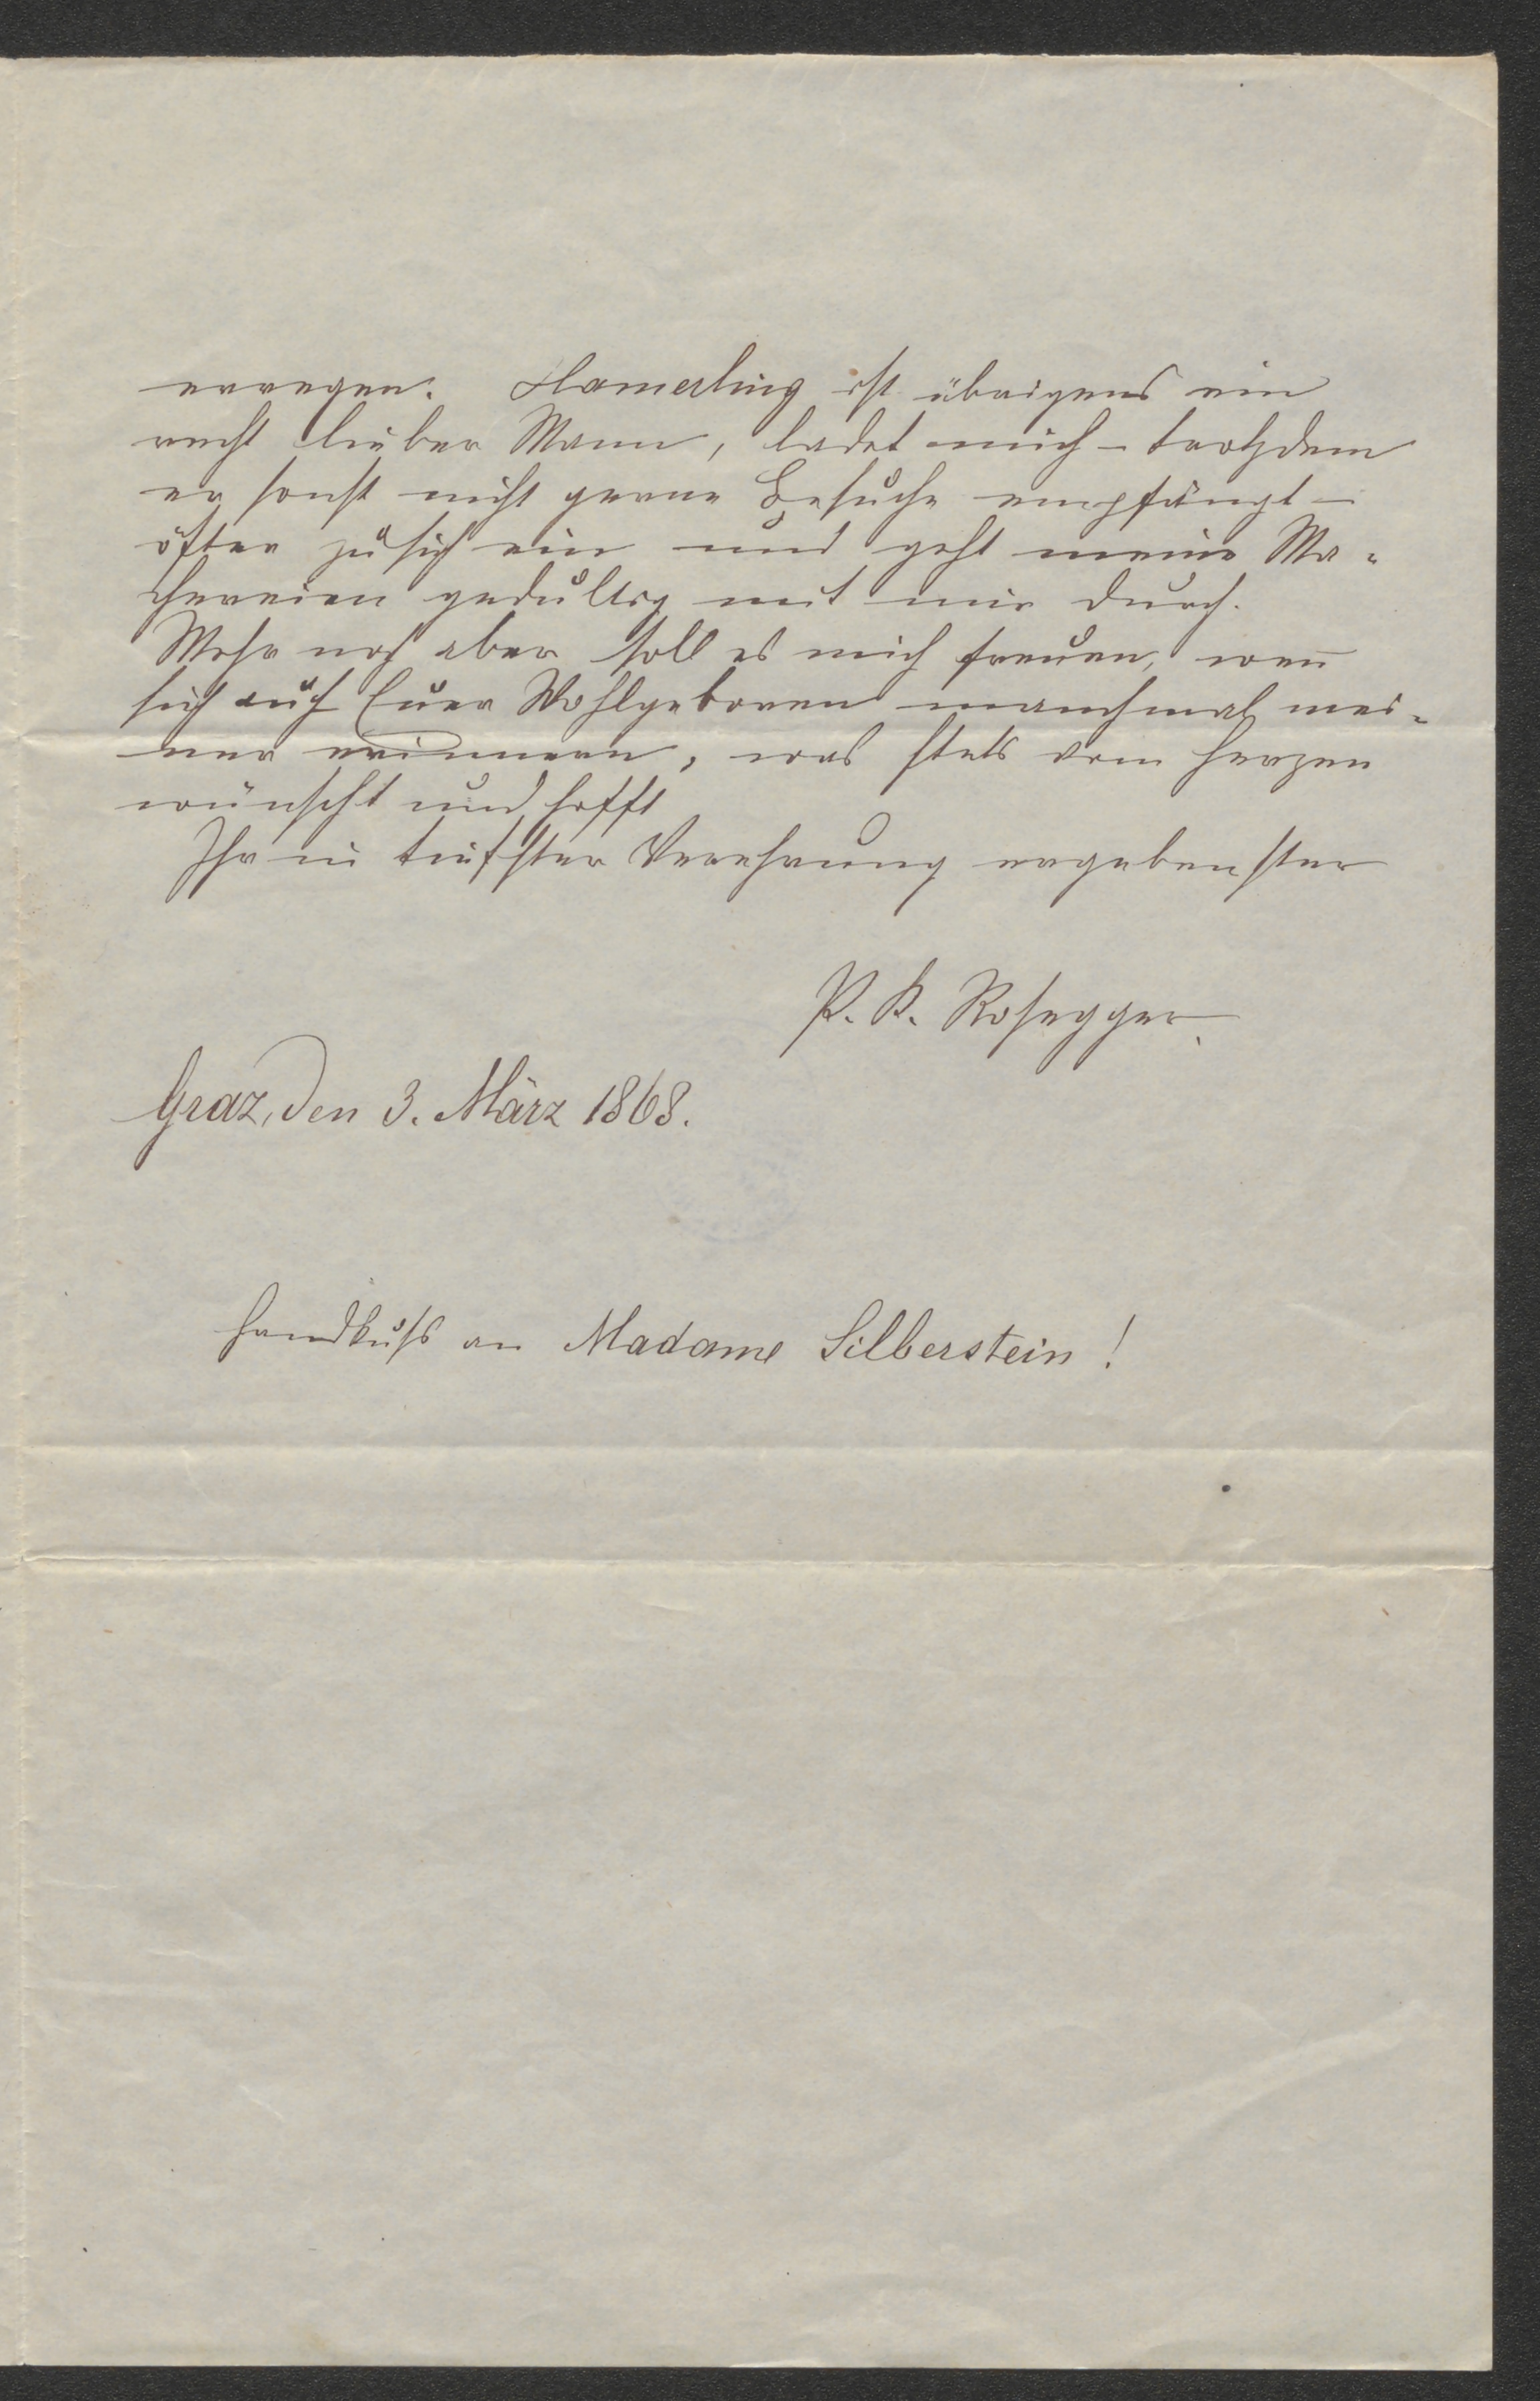 erregen. Hamerling ist übrigens ein
recht lieber Mann, ladet mich – trotzdem
er sonst nicht gerne Besuche empfängt –
öfter zu sich ein und geht meine Ma-
chereien geduldig mit mir durch.
Mehr noch aber soll es mich freuen, wen̅
sich auch Euer Wohlgeboren manchmal mei-
ner erinnern, was stets vom Herzen
wünscht und hofft
Ihr in tiefster Verehrung ergebenster
P. K. Rosegger.
Graz, den 3. März 1868.
Handkuß an Madame Silberstein!